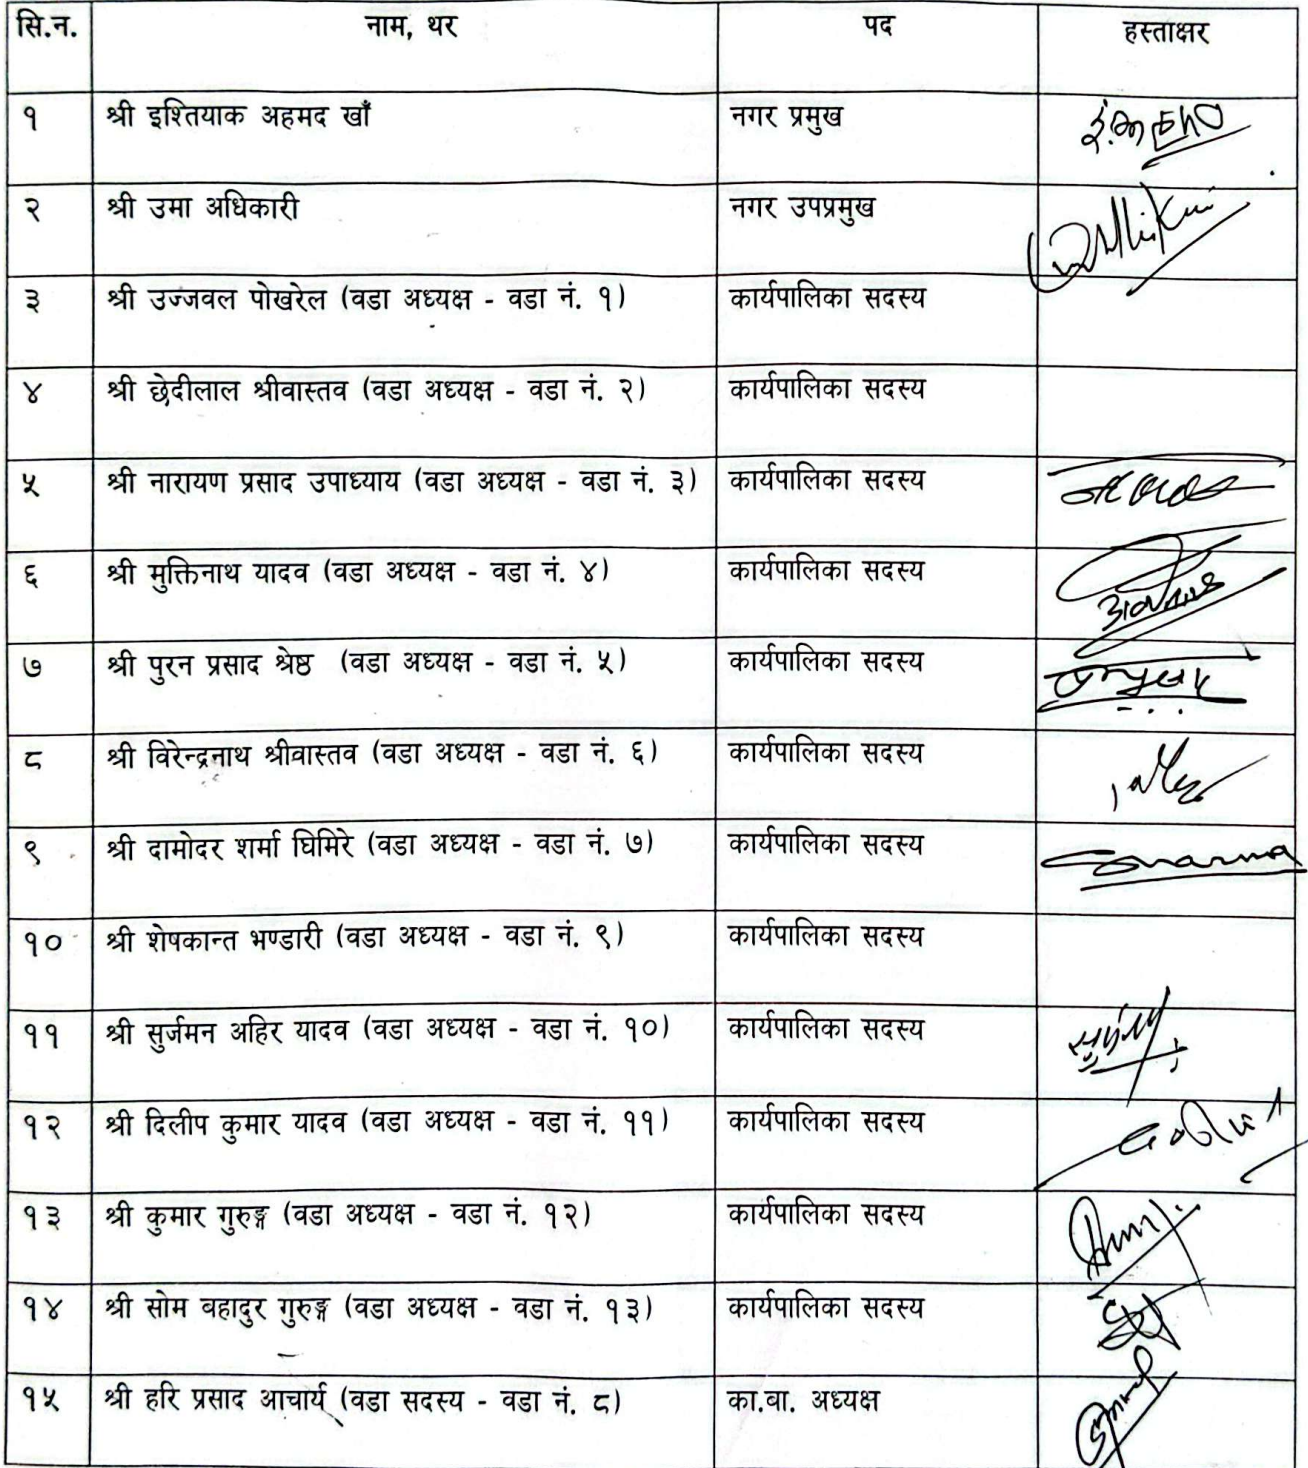 सि.न. नाम, थर पद हस्ताक्षर
१ श्री इश्तियाक अहमद खाँ नगर प्रमुख
२ श्री उमा अधिकारी नगर उपप्रमुख
३ श्री उज्जवल पोखरेल (वडा अध्यक्ष - वडा नं. १) कार्यपालिका सदस्य
४ श्री छेदीलाल श्रीवास्तव (वडा अध्यक्ष - वडा नं. २) कार्यपालिका सदस्य
५ श्री नारायण प्रसाद उपाध्याय (वडा अध्यक्ष - वडा नं. ३) कार्यपालिका सदस्य
६ श्री मुक्तिनाथ यादव (वडा अध्यक्ष - वडा नं. ४) कार्यपालिका सदस्य
७ श्री पुरन प्रसाद श्रेष्ठ (वडा अध्यक्ष - वडा नं. ५) कार्यपालिका सदस्य
८ श्री विरेन्द्रनाथ श्रीवास्तव (वडा अध्यक्ष - वडा नं. ६) कार्यपालिका सदस्य
९ श्री दामोदर शर्मा घिमिरे (वडा अध्यक्ष - वडा नं. ७) कार्यपालिका सदस्य
१० श्री शेषकान्त भण्डारी (वडा अध्यक्ष - वडा नं. ९) कार्यपालिका सदस्य
११ श्री सुर्जमन अहिर यादव (वडा अध्यक्ष - वडा नं. १०) कार्यपालिका सदस्य
१२ श्री दिलीप कुमार यादव (वडा अध्यक्ष - वडा नं. ११) कार्यपालिका सदस्य
१३ श्री कुमार गुरुङ्ग (वडा अध्यक्ष - वडा नं. १२) कार्यपालिका सदस्य
१४ श्री सोम बहादुर गुरुङ्ग (वडा अध्यक्ष - वडा नं. १३) कार्यपालिका सदस्य
१५ श्री हरि प्रसाद आचार्य (वडा सदस्य - वडा नं. ८) का.वा. अध्यक्ष